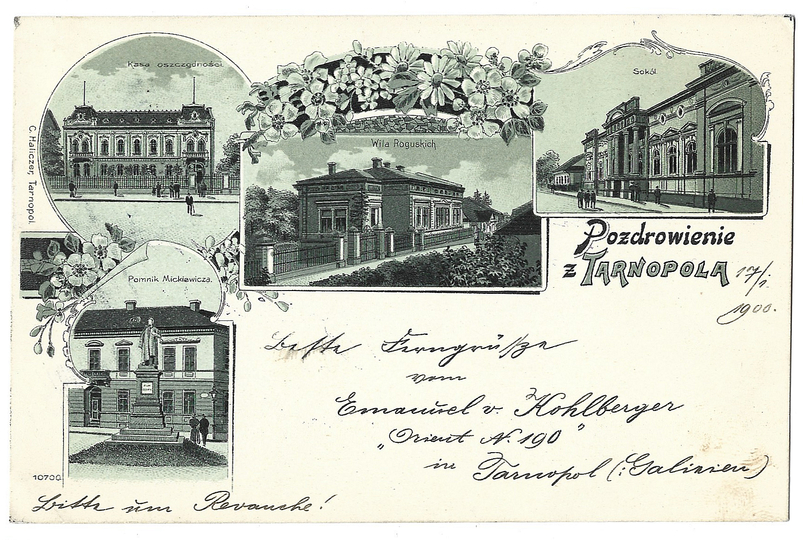 Kasa oszczędności.
Wila Roguskich.
Sokół
C. Haliczer, Tarnopol.
Pozdrowienie
z TARNOPOLA
17/1.
1900.
Pomnik Mickiewicza.
Beste Ferngrüße
vom
Emanuel v. Kohlberger
„Orient N. 190"
in Tarnopol (:Galizien)
10706
Bitte um Revanche!